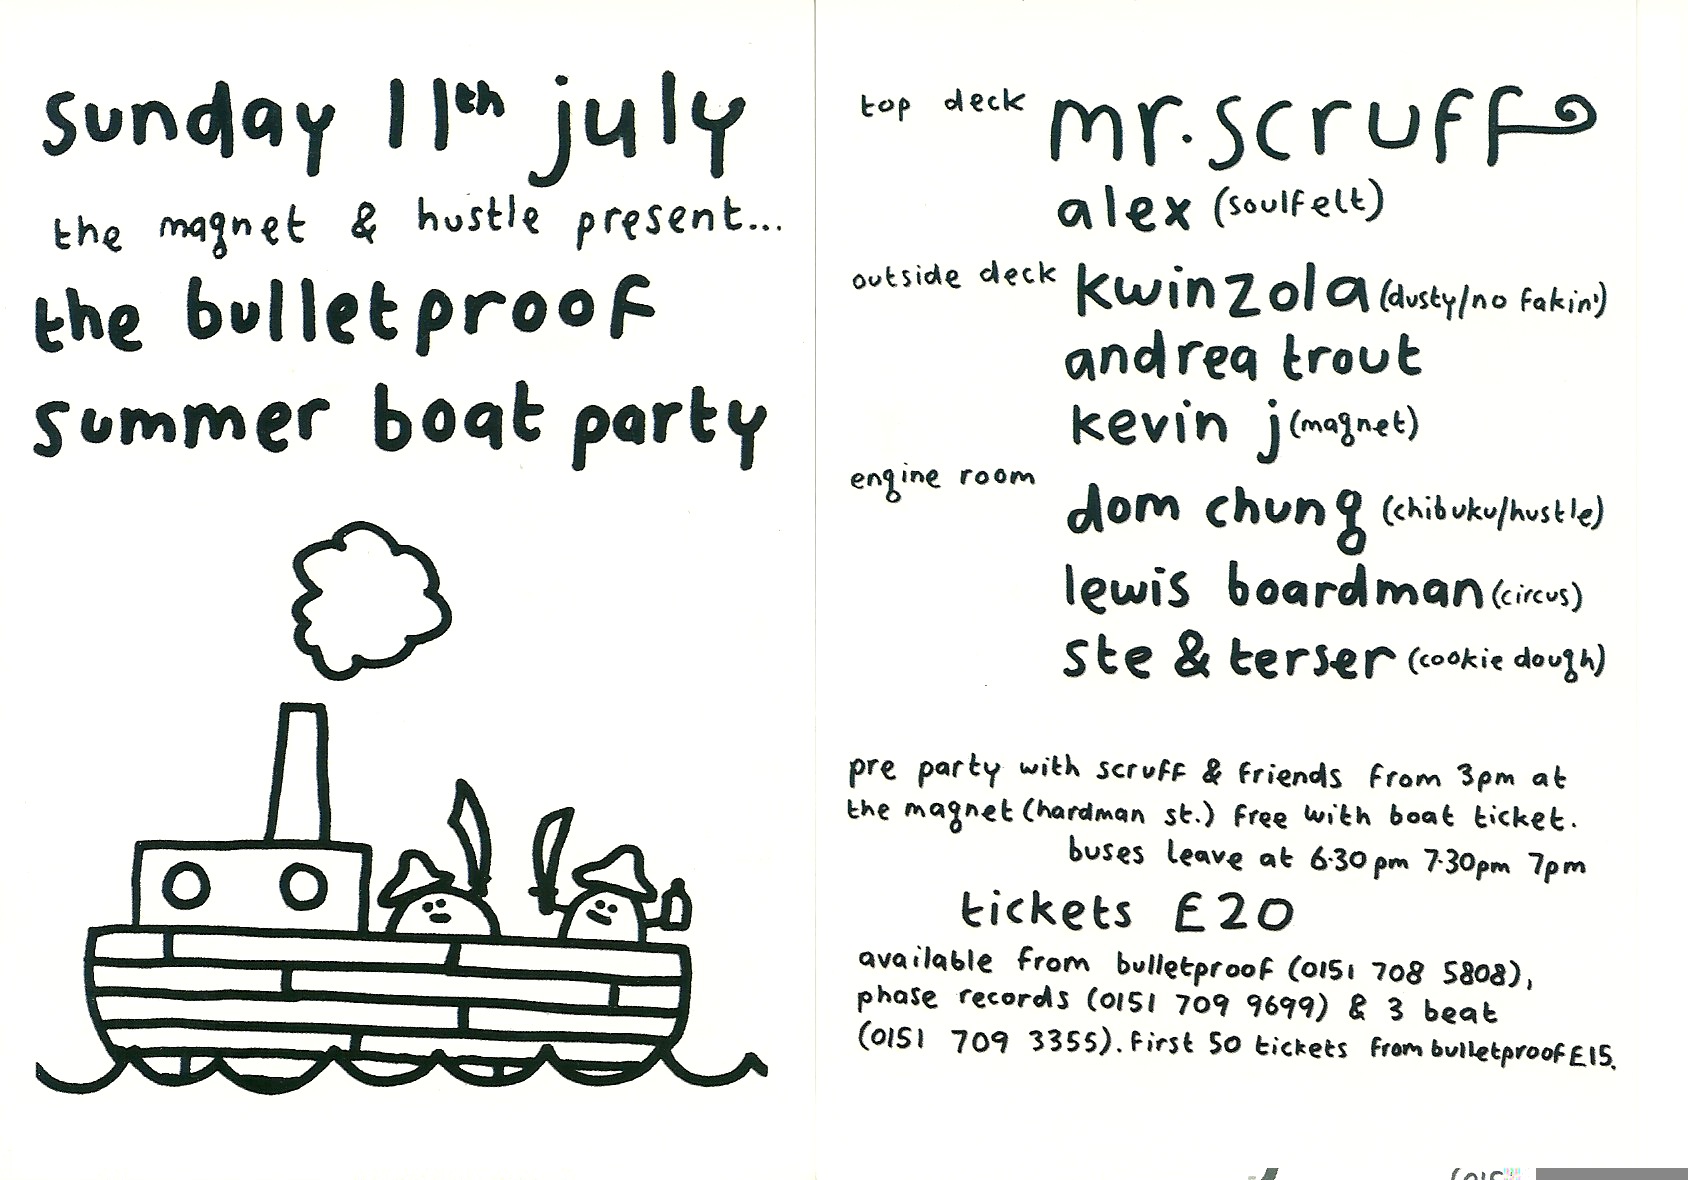 sunday 11th july
the magnet & hustle present...
the bulletproof
summer boat party
top deck mr.scruff
alex (soulfelt)
outside deck kwinzola (dusty/no fakin')
andrea trout
kevin j (magnet)
engine room
dom chung (chibuku/hustle)
lewis boardman (circus)
ste & terser (cookie dough)
pre party with scruff & friends from 3pm at
the magnet (hardman st.) free with boat ticket.
buses leave at 6.30pm 7.30pm 7pm
tickets £20
available from bulletproof (0151 708 5808),
phase records (0151 709 9699) & 3 beat
(0151 709 3355). first 50 tickets from bulletproof £15.